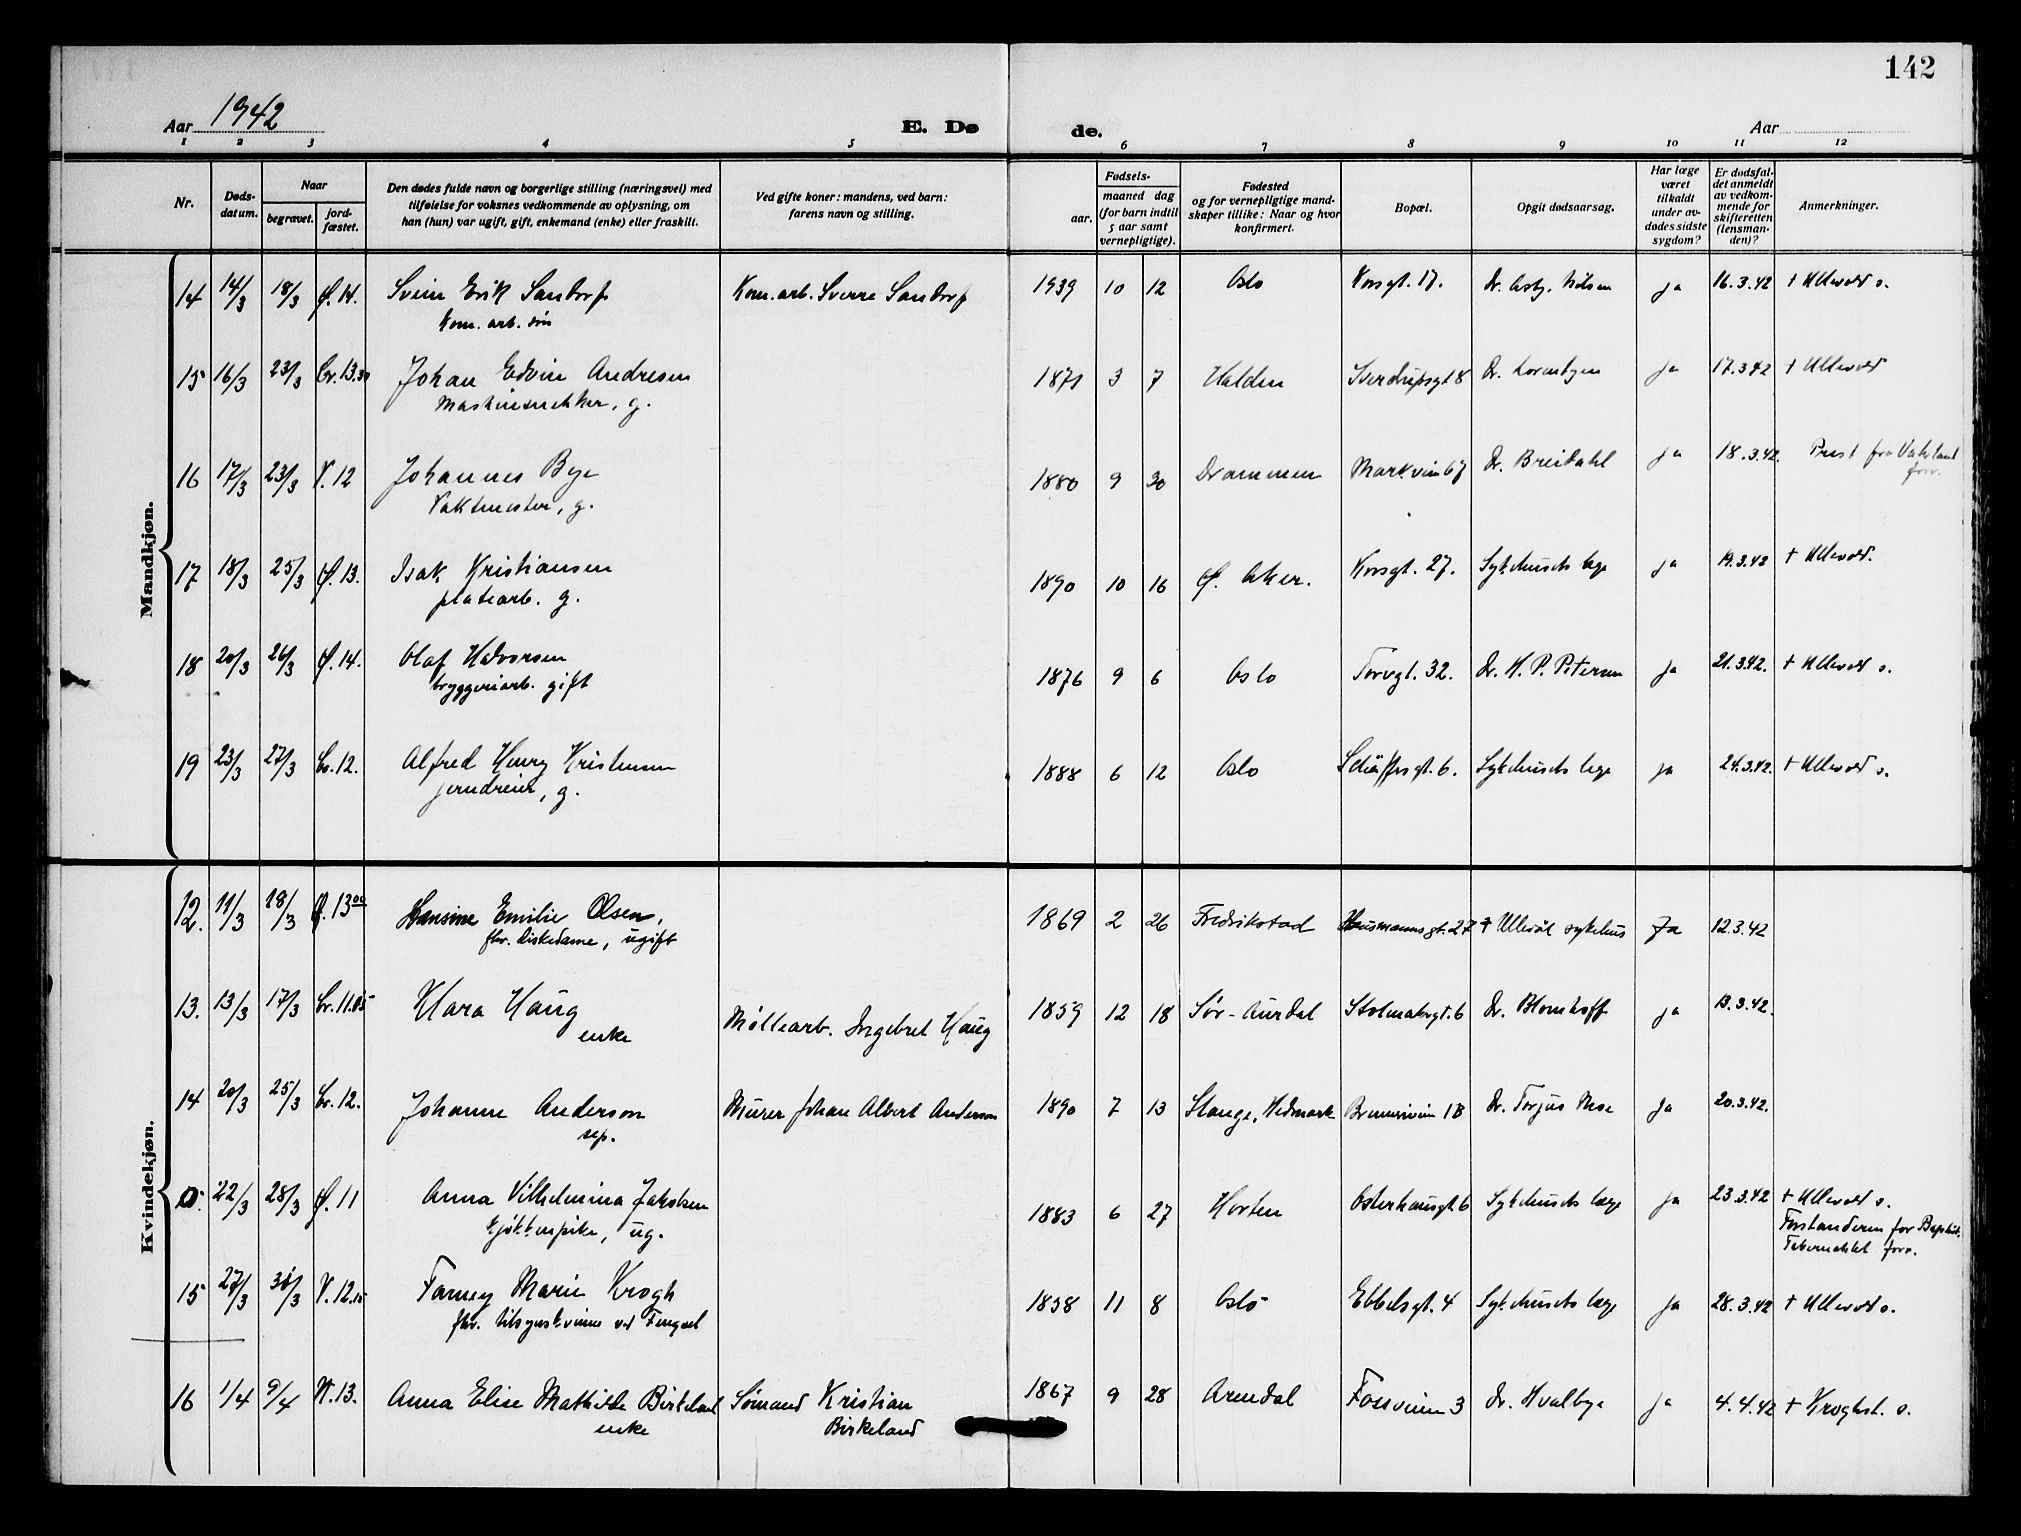 142
Aar 1942 E. Dø de. Aar
1 2 3 4 5 6 7 8 9 10 11 12
Nr.
Døds-
datum.
Naar
begravet. jord-
fæstet.
Den dødes fulde navn og borgerlige stilling (næringsvei) med
tilføielse for voksnes vedkommende av oplysning, om
han (hun) var ugift, gift, enkemand (enke) eller fraskilt.
Ved gifte koner: mandens, ved barn:
farens navn og stilling.
Fødsels-
aar. maaned dag
(for barn indtil
5 aar samt
vernepligtige).
Fødested
og for vernepligtige mand-
skaper tillike: Naar og hvor
konfirmert.
Bopæl.
Opgit dødsaarsag.
Har læge
været
tilkaldt
under av-
dødes sidste
sygdom?
Er dødsfal-
det anmeldt
av vedkom-
mende for
skifteretten
(lensman-
den)?
Anmerkninger.
Mandkjøn.
14 14/3 18/3 Ø. 14. Svein Erik Sandorf Kom. arb. Sverre Sandorf 1939 10 12 Oslo Korsgt. 17. Dr. Asbj. Nilsen ja 16.3.42 + Ullevål s.
Kom. arb. søn
15 16/3 23/3 Cr. 13.30 Johan Edvin Andresen 1871 3 7 Halden Sverdrupsgt 8 Dr. ja 17.3.42 + Ullevål
Maskinsnekker, g.
16 17/3 23/3 V. 12 Johannes Bye 1880 9 30 Drammen Markvein 67 Dr. Breidahl ja 18.3.42. Prest fra Vaksland
Vaktmester, g. forr.
17 18/3 25/3 Ø. 13. Isak Kristiansen 1890 10 16 Ø. Aker. Korsgt. 27. Sykehusets læge ja 19.3.42 + Ullevål.
platearb. g.
18 20/3 26/3 Ø. 14. Olaf Halvorsen 1876 9 6 Oslo Torvgt. 32. Dr. H. P. Petersen ja 21.3.42. + Ullevål s.
bryggeriarb. gift
19 23/3 27/3 Cr. 12. Alfred Henry Kristensen 1888 6 12 Oslo Schäffersgt. 6. Sykehusets læge ja 24.3.42. + Ullevål s.
jerndreier, g.
Kvindekjøn.
12. 11/3 18/3 Ø. 13 00 Hansine Emilie Olsen, 1869 2 26 Fredrikstad Hausmannsgt. 27 + Ullevål sykehus Ja 12.3.42
fhv. diskedame, ugift
13. 13/3 17/3 Cr. 11.05 Klara Haug Møllearb. Ingebret Haug 1859 12 18 Sør-Aurdal Stolmakergt. 6 Dr. Blomhoff ja 13.3.42.
enke
14 20/3 25/3 Cr. 12. Johanne Anderson Murer Johan Albert Anderson 1890 7 13 Stange, Hedmark Brenneriveien 1B Dr. Torjus Moe Ja 20.3.42.
sep.
0. 22/3 28/3 Ø. 11 Anna Vilhelmina Jakobsen 1883 6 27 Horten Osterhausgt 6 Sykehusets læge ja 23.3.42 + Ullevål s.
Kjøkkenpike, ug. Forstanderen for Baptist.
Tabernaklet forr.
15 27/3 31/3 V. 12.15 Fanny Marie Krogh 1858 11 8 Oslo Ebbelsgt. 4 Sykehusets læge Ja 28.3.42 + Ullevål s.
fhv. tilsynskvinne ved Fengsel
16 1/4 9/4 N. 13. Anna Elise Mathilde Birkeland Sømand Kristian 1867 9 28 Arendal Fossveien 3 Dr. Hvalbye ja 4.4.42 + Kroghst. s.
enke Birkeland